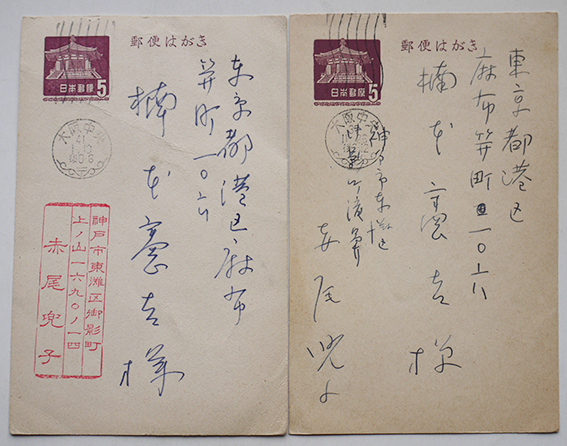 郵便はがき
日本郵便
5
大阪中央
東京都港区麻布
笄町一〇六
楠本憲吉様
神戸市東灘区御影町
上ノ山一六九〇ノ一四
赤尾兜子
郵便はがき
日本郵便
5
大阪中央
東京都港区
麻布笄町一〇六
楠本憲吉様
神戸市東灘区
赤尾兜子